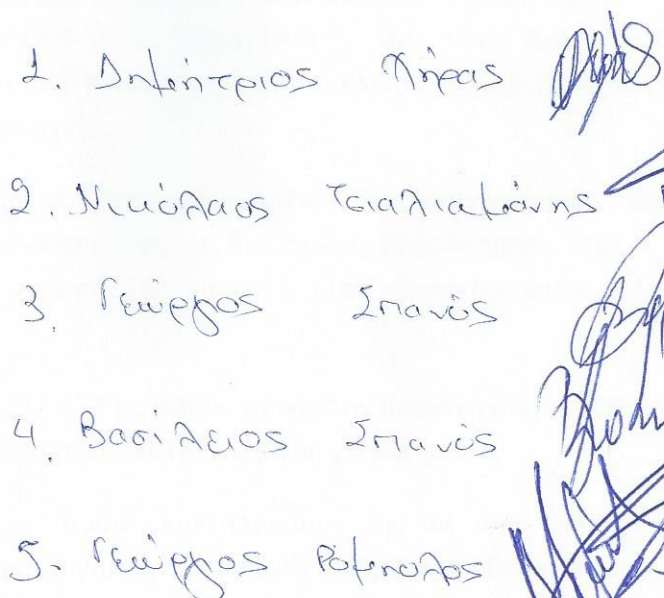 1. Δημήτριος Πήρας
2. Νικόλαος Τσιαλιαμάνης
3. Γεώργιος Σπανός
4. Βασίλειος Σπανός
5. Γεώργιος Ρόμπολος